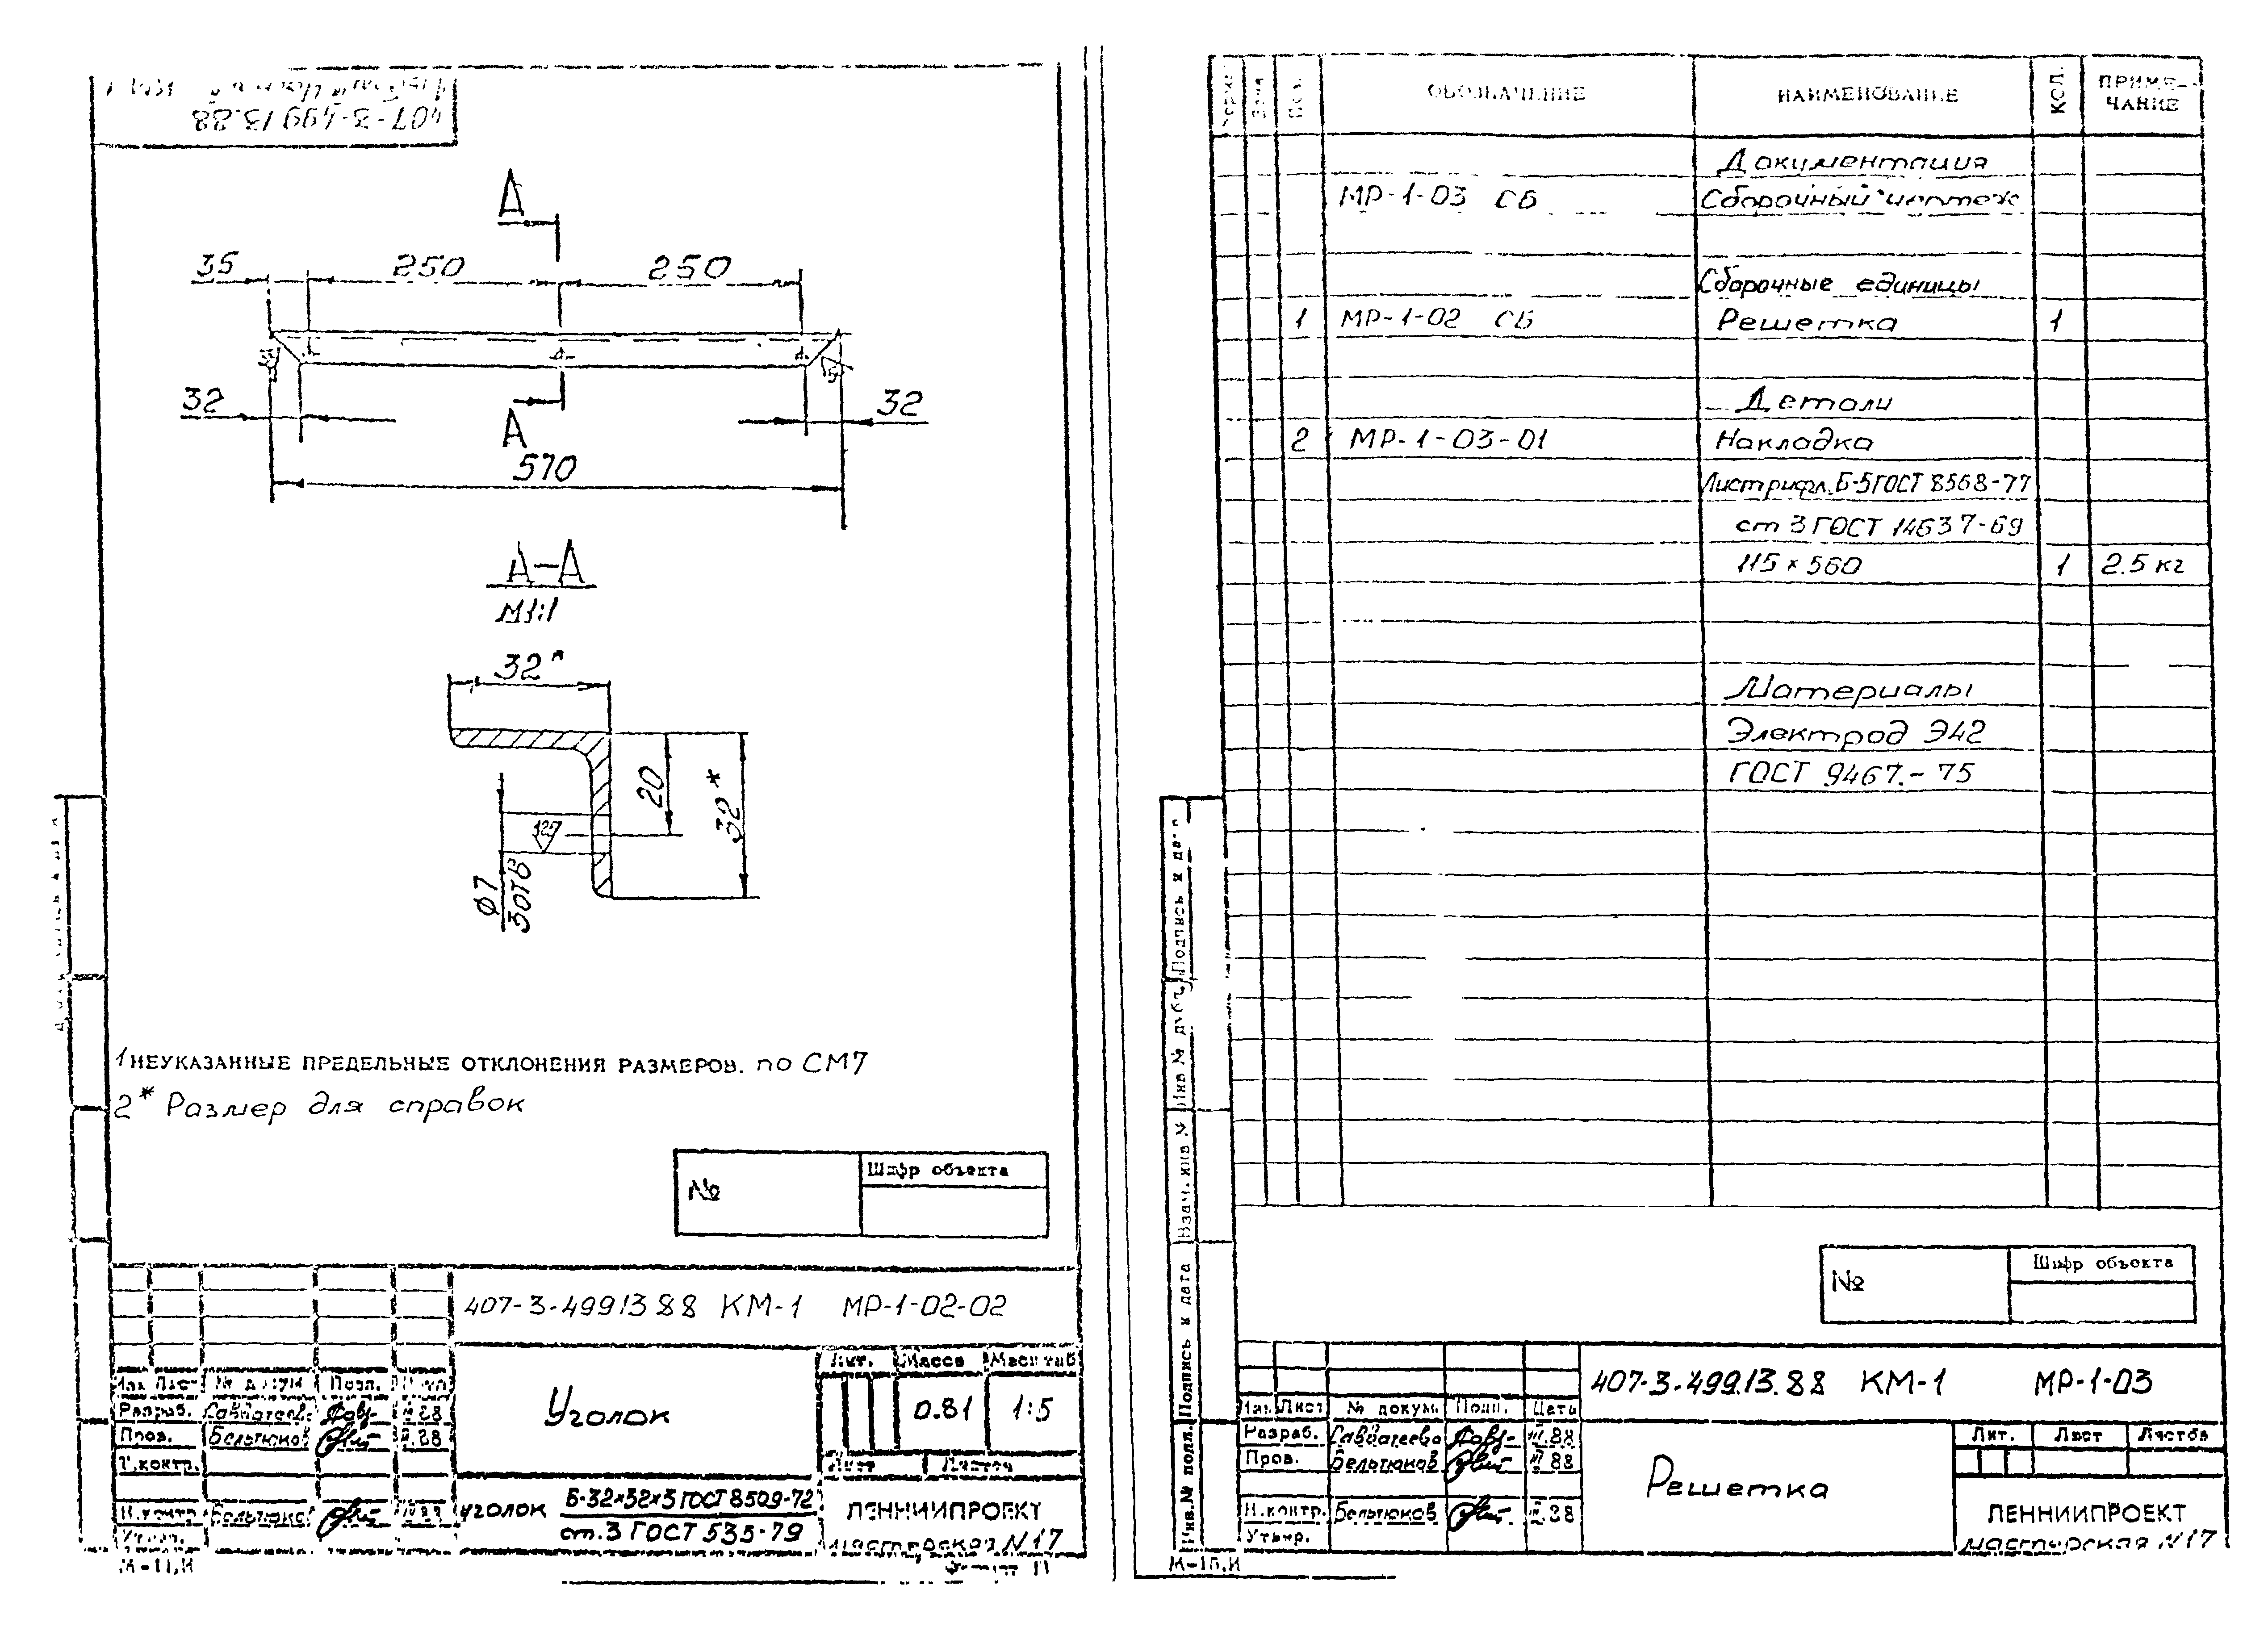 407-3-499 13.88
А
35
250
250
32
А
32
570
А-А
М1:1
32*
20
32*
125
Ø7
3отв
1 НЕУКАЗАННЫЕ ПРЕДЕЛЬНЫЕ ОТКЛОНЕНИЯ РАЗМЕРОВ. по СМ7
2* Размер для справок
№
Шифр объекта
407-3-499 13 88 КМ-1 МР-1-02-02
Уголок
Лит. Масса Масштаб
0.81 1:5
Лист Листов
Изм Лист № докум Подп. Дата
Разраб. III.88
Пров. Бельтюков III.88
Т.контр.
Н.контр. Бельтюков III.88
Утвер.
уголок Б-32×32×3 ГОСТ 8509-72
ст.3 ГОСТ 535-79
ЛЕННИИПРОЕКТ
мастерская N17
М-11.И
Формат 11
ФОРМ. ЗОНА ПОЗ. ОБОЗНАЧЕНИЕ НАИМЕНОВАНИЕ КОЛ. ПРИМЕ-
ЧАНИЕ
Документация
МР-1-03 СБ Сборочный чертеж
Сборочные единицы
1 МР-1-02 СБ Решетка 1
Детали
2 МР-1-03-01 Накладка
Лист рифл. Б-5 ГОСТ 8568-77
ст 3 ГОСТ 14637-69
115×560 1 2.5 кг
Материалы
Электрод Э42
ГОСТ 9467.-75
№
Шифр объекта
Инв.№ подл. Подпись и дата Взам. инв № Инв № дубл. Подпись и дата
407-3-499.13.88 КМ-1 МР-1-03
Изм Лист № докум. Подп. Дата
Разраб. III.88
Пров. Бельтюков III 88
Н.контр. Бельтюков III.88
Утвер.
Решетка
Лит. Лист Листов
ЛЕННИИПРОЕКТ
мастерская N17
М-1б.И